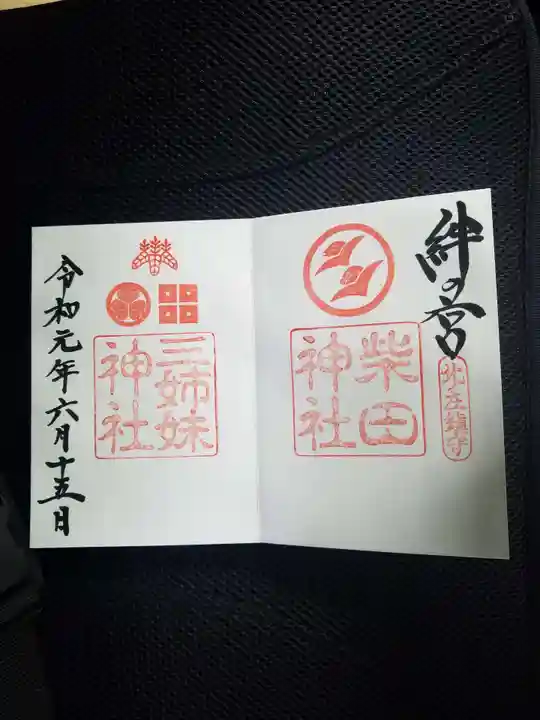 絆の宮
北庄鎮守
柴田
神社
三姉妹
神社
令和元年六月十五日